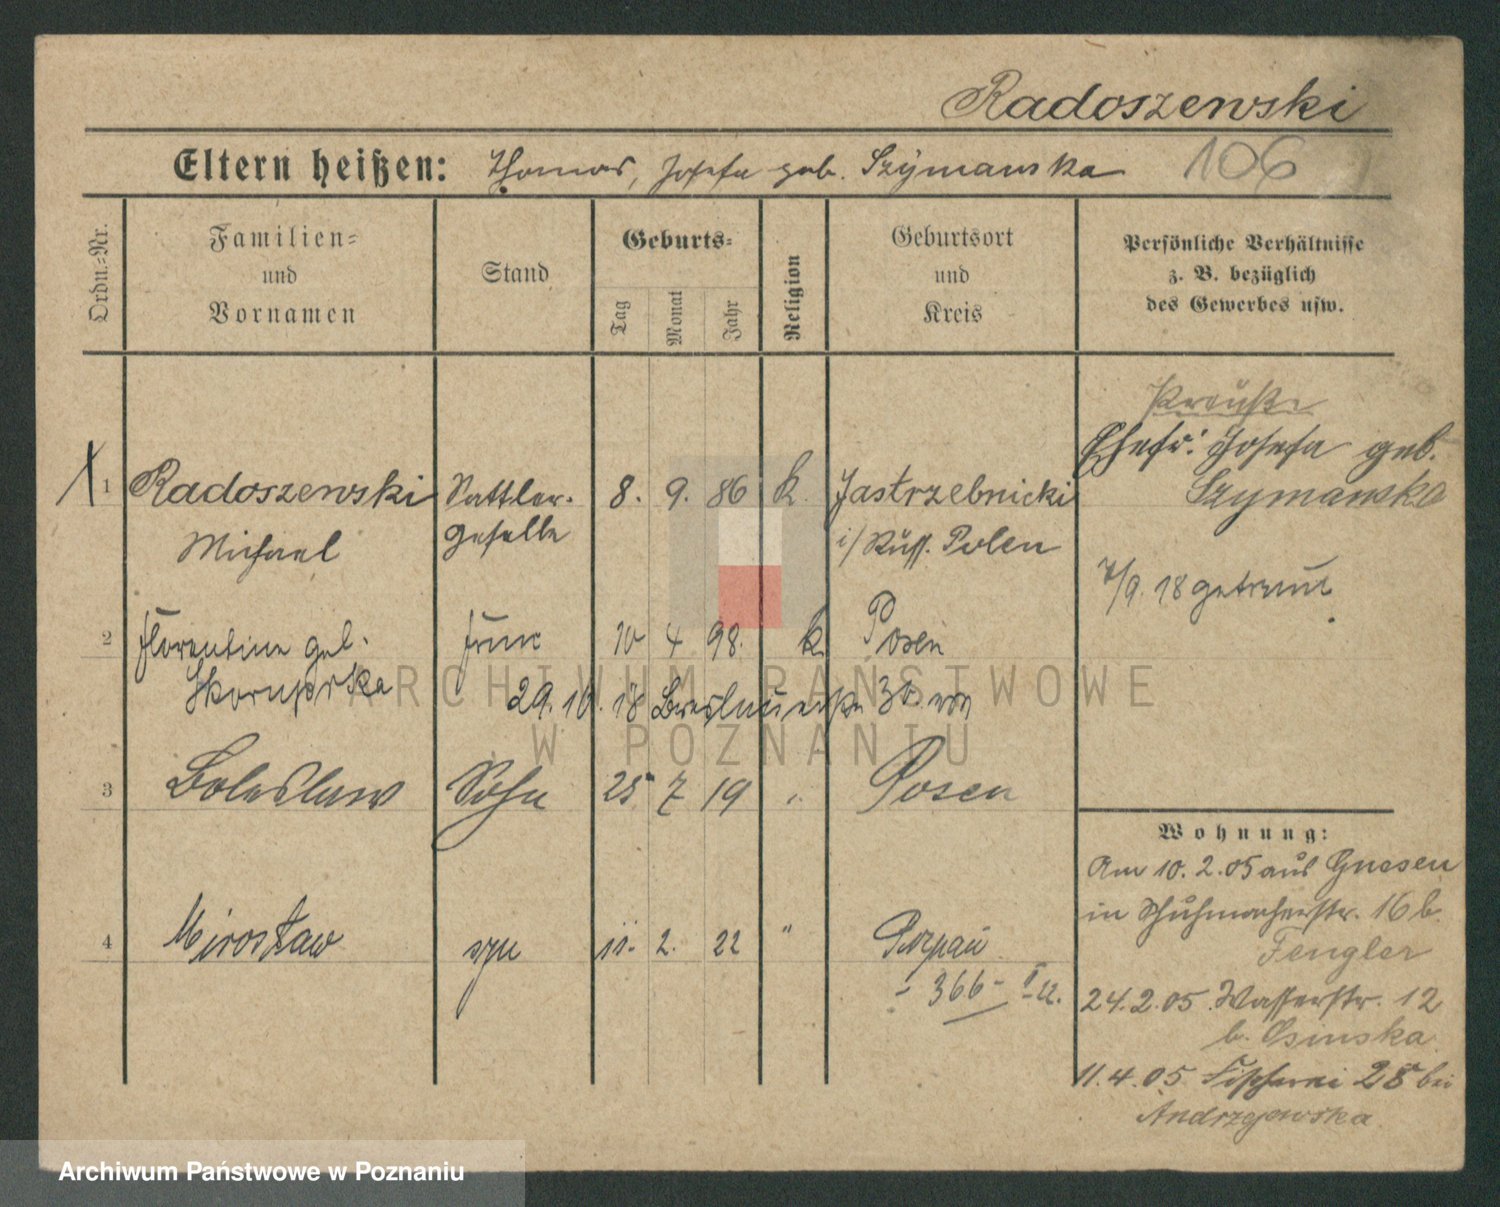 Radoszewski
Eltern heißen: Thomas, Josefa geb. Szymanska 106
Ordn.-Nr.
Familien-
und
Vornamen
Stand
Geburts-
Tag
Monat
Jahr
Religion
Geburtsort
und
Kreis
Persönliche Verhältnisse
z. B. bezüglich
des Gewerbes usw.
Ehefr: Josefa geb.
Szymanska
1 Radoszewski Sattler- 8. 9. 86 k. Jastrzebnicki
Michael geselle i/ Russ. Polen
7/9. 18 getraut
2 Florentine geb. Frau 10 4 98. k. Posen
Skorupska
29. 10. 18 Breslauerstr. 30 von
3 Boleslaw Sohn 25 7 19 " Posen
4 Mirosław syn 11. 2. 22 "
366
Wohnung:
Am 10. 2. 05 aus Gnesen
in Schuhmacherstr. 16 b.
Fengler
24. 2. 05. Wasserstr. 12
b. Osinska
11. 4. 05 Fischerei 28 bei
Andrzejewska
ARCHIWUM PAŃSTWOWE
W POZNANIU
Archiwum Państwowe w Poznaniu